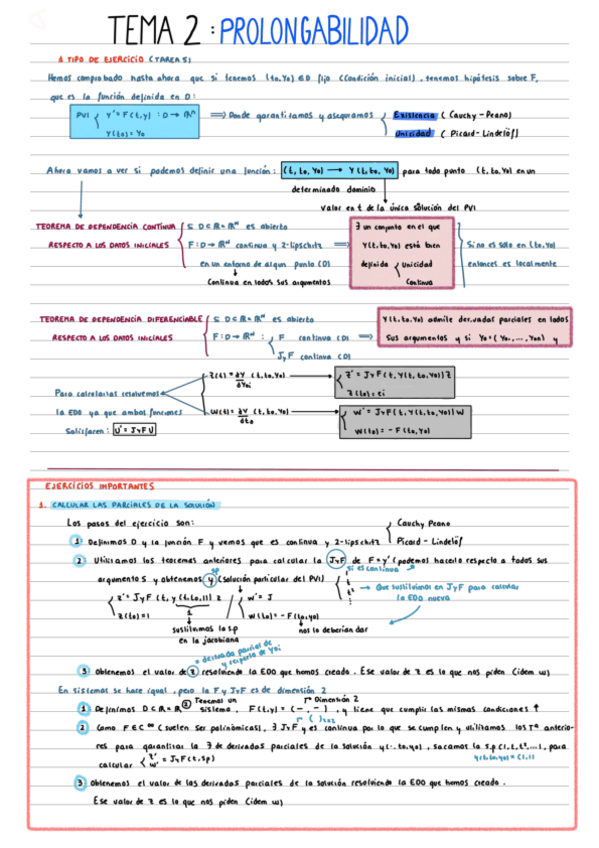 TEMA 2 : PROLONGABILIDAD
1 TIPO DE EJERCICIO (TAREA 5)
Hemos comprobado hasta ahora que si tenemos (to,Yo) ∈ D fijo (Condición inicial), tenemos hipótesis sobre F,
que es la función definida en D :
PVI { Y' = F(t,y) : D → ℝᴺ ⟹ Donde garantizamos y aseguramos { Existencia ( Cauchy - Peano)
Y(to) = Yo Unicidad ( Picard - Lindelöf)
Ahora vamos a ver si podemos definir una función : (t, to, Yo) → Y(t, to, Yo) para todo punto (t, to, Yo) en un
determinado dominio
Valor en t de la única solución del PVI
TEOREMA DE DEPENDENCIA CONTINUA { Si D ⊂ ℝ × ℝᴺ es abierto
RESPECTO A LOS DATOS INICIALES F : D → ℝᴺ continua y 2-lipschitz ⟹
en un entorno de algun punto (D)
Continua en todos sus argumentos
∃ un conjunto en el que
Y(t, to, Yo) está bien
definida { Unicidad
Continua
Si no es sólo en (to, Yo)
entonces es localmente
TEOREMA DE DEPENDENCIA DIFERENCIABLE { Si D ⊂ ℝ × ℝᴺ es abierto
RESPECTO A LOS DATOS INICIALES F : D → ℝᴺ : { F continua (D) ⟹
JyF continua (D)
Y(t, to, Yo) admite derivadas parciales en todos
sus argumentos y si Yo = ( Yo₁, ..., Yoₙ ) y
Para calcularlas resolvemos
la EDO ya que ambas funciones
satisfacen : U' = JyF U
Z(t) = ∂Y/∂Yoi (t, to, Yo) → { Z' = JyF(t, Y(t, to, Yo)) Z
Z(to) = ei
W(t) = ∂Y/∂to (t, to, Yo) → { W' = JyF(t, Y(t, to, Yo)) W
W(to) = - F(to, Yo)
EJERCICIOS IMPORTANTES
1. CALCULAR LAS PARCIALES DE LA SOLUCIÓN
Los pasos del ejercicio son:
1 Definimos D y la función F y vemos que es continua y 2-lipschitz { Cauchy Peano
Picard - Lindelöf
2 Utilizamos los teoremas anteriores para calcular la JyF de F = y' (podemos hacerlo respecto a todos sus
si es continua
argumentos y obtenemos y (solución particular del PVI)
sp
Que sustituimos en JyF para calcular
la EDO nueva
{ z' = JyF (t, y(t, to, 1)) z / { w' = J
z(to) = 1 w(to) = - F(to, yo)
sustituimos la s.p
en la jacobiana
nos lo deberían dar
= derivada parcial de
y respecto de Yoi
3 Obtenemos el valor de z resolviendo la EDO que hemos creado. Ese valor de z es lo que nos piden (idem w)
En sistemas se hace igual, pero la F y JyF es de dimensión 2
1 Definimos D ⊂ ℝ × ℝ² Tenemos un sistema, F(t, y) = ( - , - ) Dimensión 2, y tiene que cumplir las mismas condiciones ↑
2 Como F ∈ C^∞ (suelen ser polinómicas), ∃ JyF y es continua por lo que se cumplen y utilizamos los Tª anterio-
( )₂ₓ₂
res para garantizar la ∃ de derivadas parciales de la solución y(·, to, yo), sacamos la s.p (t, t, t², ...), para
calcular { z' w' = JyF(t, sp)
3 Obtenemos el valor de las derivadas parciales de la solución resolviendo la EDO que hemos creado.
Ese valor de z es lo que nos piden (idem w)